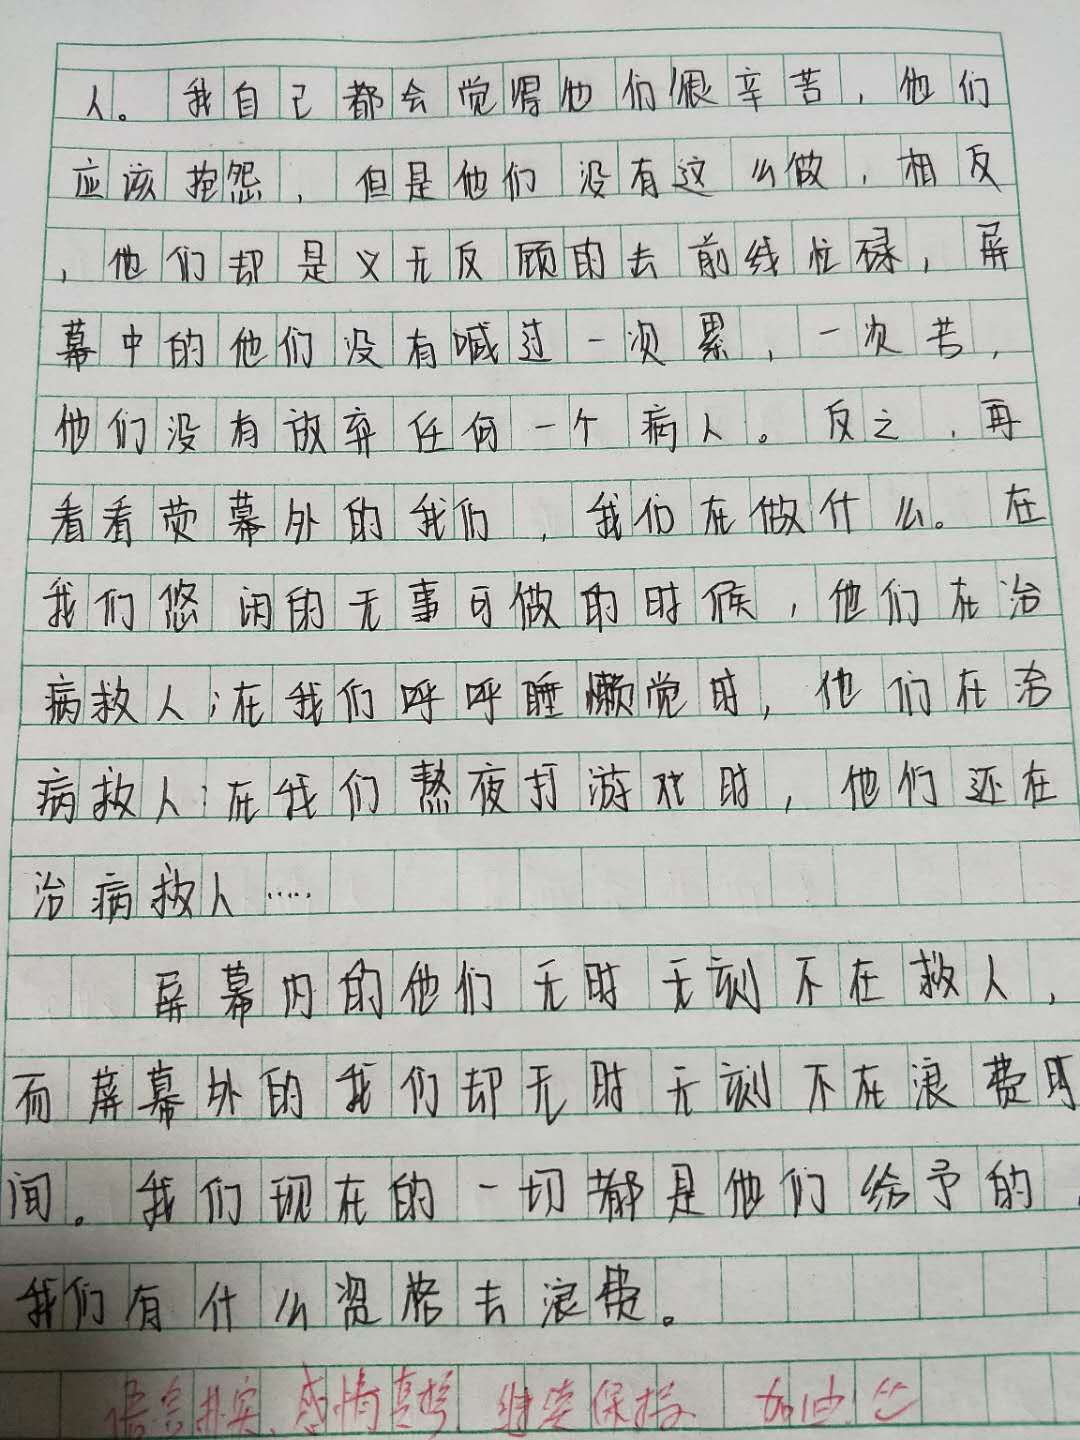 人。我自己都会觉得他们很辛苦，他们
应该抱怨，但是他们没有这么做，相反
，他们却是义无反顾的去前线忙碌，屏
幕中的他们没有喊过一次累，一次苦，
他们没有放弃任何一个病人。反之，再
看看荧幕外的我们，我们在做什么。在
我们悠闲的无事可做的时候，他们在治
病救人；在我们呼呼睡懒觉时，他们在治
病救人；在我们熬夜打游戏时，他们还在
治病救人……
屏幕内的他们无时无刻不在救人，
而屏幕外的我们却无时无刻不在浪费时
间。我们现在的一切都是他们给予的，
我们有什么资格去浪费。
语言朴实、感情真挚 继续保持 加油！